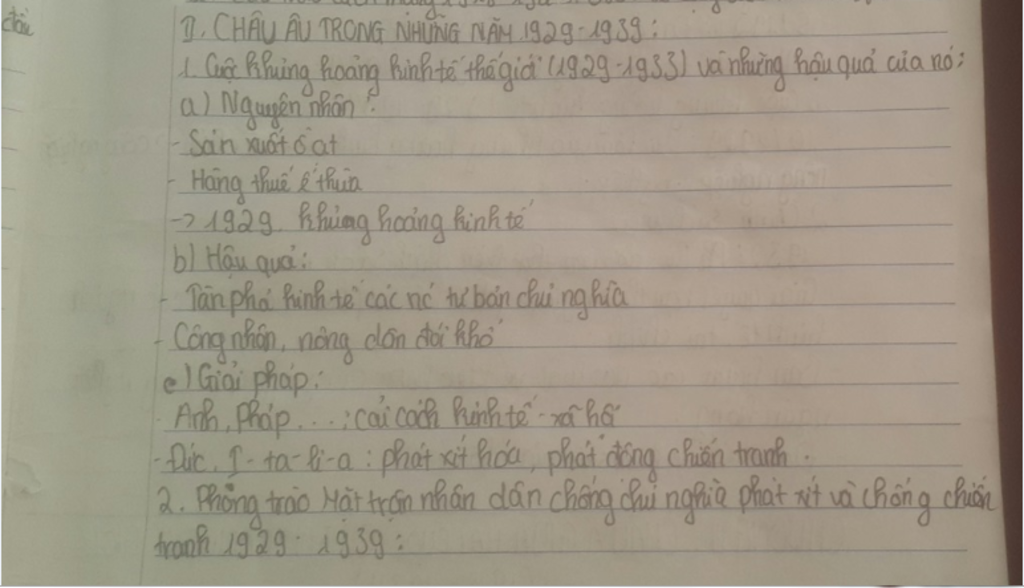 đầu
II. CHÂU ÂU TRONG NHỮNG NĂM 1929-1939:
1. Cuộc khủng hoảng kinh tế thế giới (1929-1933) và những hậu quả của nó:
a) Nguyên nhân:
- Sản xuất ồ ạt
- Hàng thuế ế thừa
-> 1929. khủng hoảng kinh tế
b) Hậu quả:
- Tàn phá kinh tế các nc tư bản chủ nghĩa
- Công nhân, nông dân đói khổ
c) Giải pháp:
- Anh, Pháp...: cải cách kinh tế - xã hội
- Đức, I-ta-li-a: phát xít hóa, phát động chiến tranh.
2. Phong trào Mặt trận nhân dân chống chủ nghĩa phát xít và chống chiến
tranh 1929-1939: